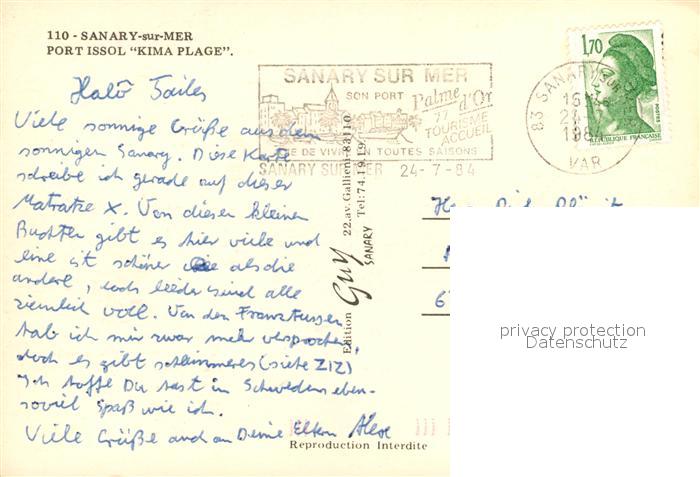 110 - SANARY-sur-MER
PORT ISSOL "KIMA PLAGE".
SANARY SUR MER
SON PORT
Palme d'Or
77
TOURISME
ACCUEIL
JOIE DE VIVRE EN TOUTES SAISONS
SANARY SUR MER 24-7-84
83 SANARY SUR MER
16H
24-7
1984
VAR
1,70
POSTES
RÉPUBLIQUE FRANÇAISE
Halo
Viele sonnige Grüße aus dem
sonnigen Sanary. Diese Karte
schreibe ich gerade auf dieser
Matratze X. Von diesen kleinen
Buchten gibt es hier viele und
eine ist schöner als die
andere, doch leider sind alle
ziemlich voll. Von den Franzosen
hab ich mir zwar mehr versprochen,
doch es gibt schlimmeres (siehe ZiZ)
Ich hoffe Du hast in Schweden eben-
soviel Spaß wie ich.
Viele Grüße auch an Deine Eltern
Edition Guy SANARY
22, av. Gallieni-83110
Tel: 74.19.19
Reproduction Interdite
privacy protection
Datenschutz